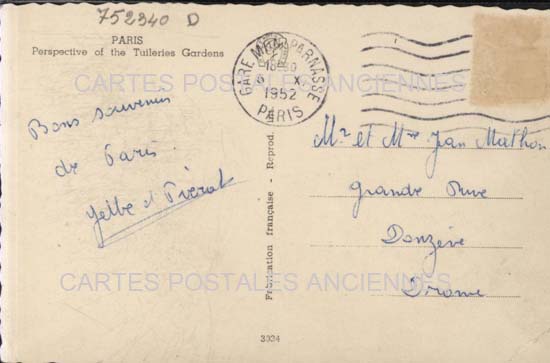 752340 D
PARIS
Perspective of the Tuileries Gardens
GARE MONTPARNASSE
18 30
6 X
1952
PARIS
CARTES POSTALES ANCIENNES
Bons souvenirs
de Paris.
Mr et Mme Jean Mathon
Grande Rue
Donzère
Drôme
Fabrication française - Reprod.
CARTES POSTALES ANCIENNES
3924